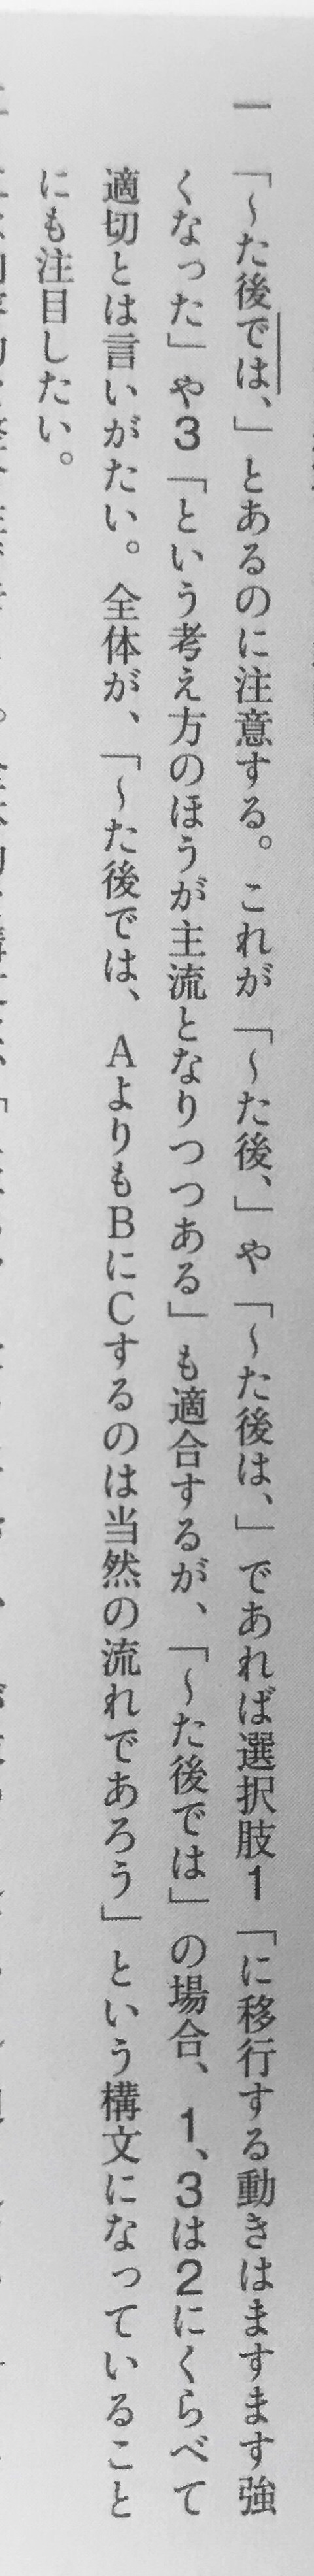 一 「～た後では、」とあるのに注意する。これが「～た後、」や「～た後は、」であれば選択肢1「に移行する動きはますます強
くなった」や3「という考え方のほうが主流となりつつある」も適合するが、「～た後では」の場合、1、3は2にくらべて
適切とは言いがたい。全体が、「～た後では、AよりもBにCするのは当然の流れであろう」という構文になっていること
にも注目したい。